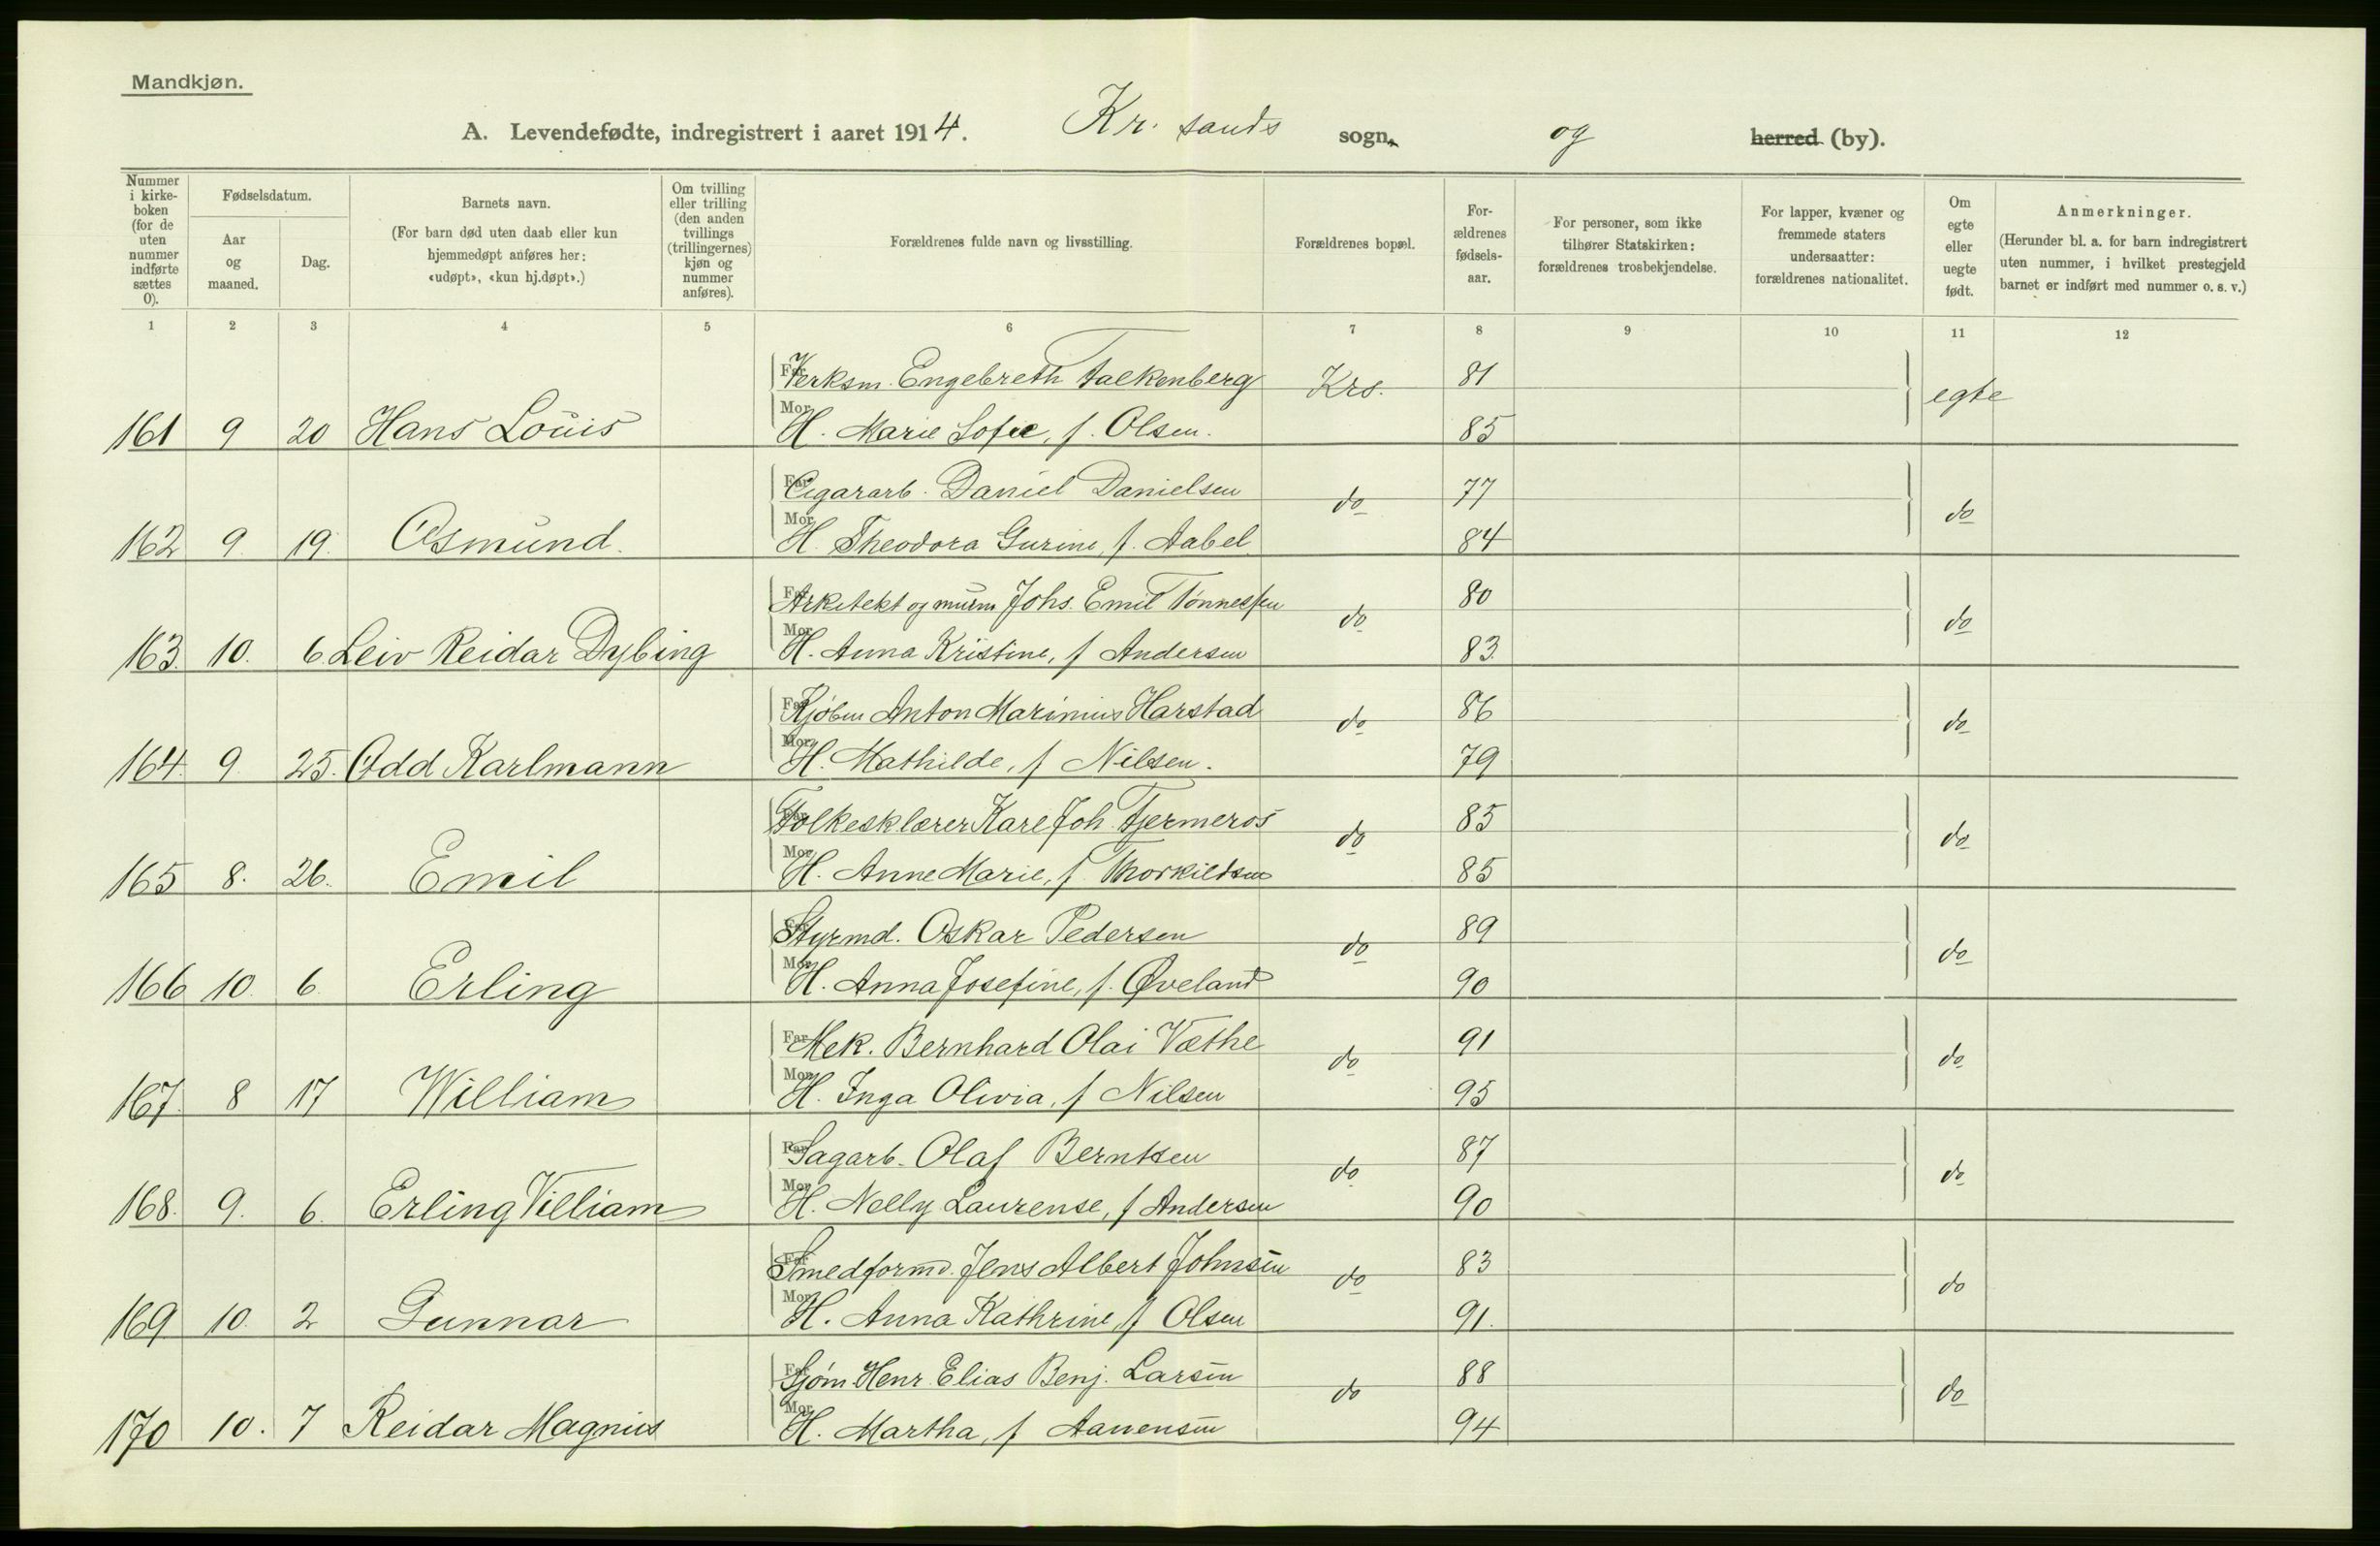 Mandkjøn.
A. Levendefødte, indregistrert i aaret 1914. Kr. sands sogn og herred (by).
Nummer i kirke-boken (for de uten nummer indførte sættes 0).
Fødselsdatum.
Aar og maaned.
Dag.
Barnets navn.
(For barn død uten daab eller kun hjemmedøpt anføres her: «udøpt», «kun hj.døpt».)
Om tvilling eller trilling (den anden tvillings (trillingernes) kjøn og nummer anføres).
Forældrenes fulde navn og livsstilling.
Forældrenes bopæl.
For-ældrenes fødsels-aar.
For personer, som ikke tilhører Statskirken: forældrenes trosbekjendelse.
For lapper, kvæner og fremmede staters undersaatter: forældrenes nationalitet.
Om egte eller uegte født.
Anmerkninger.
(Herunder bl. a. for barn indregistrert uten nummer, i hvilket prestegjeld barnet er indført med nummer o. s. v.)
1 2 3 4 5 6 7 8 9 10 11 12
Far Verksm. Engebreth Falkenberg Krs. 81 egte
161 9 20 Hans Louis Mor H. Marie Sofie, f. Olsen. 85
Far Cigararb. Daniel Danielsen do 77 do
162 9. 19. Osmund. Mor H. Theodora Gurine, f. Aabel 84
Far Arkitekt og murm Johs. Emil Tønnessen do 80 do
163. 10. 6. Leiv Reidar Dybing Mor H. Anna Kristine, f Andersen 83.
Far Kjøbm Anton Marinius Harstad do 86 do
164. 9. 25. Odd Karlmann Mor H. Mathilde, f Nilsen. 79
Far Folkesklærer Kare Joh. Fjermeros do 85 do
165 8. 26. Emil Mor H. Anne Marie, f. Thorkildsen 85
Far Styrmd. Oskar Pedersen do 89 do
166 10. 6. Erling Mor H. Anna Josefine, f. Øveland 90
Far Mek. Bernhard Olai Væthe do 91 do
167. 8 17 William Mor H. Inga Olivia, f Nilsen 95
Far Sagarb. Olaf Berntsen do 87 do
168. 9. 6. Erling Villiam Mor H. Nelly Laurense, f Andersen 90
Far Smedformd. Jens Albert Johnsen do 83 do
169 10. 2 Gunnar Mor H. Anna Kathrine, f Olsen 91.
Far Sjøm. Henr. Elias Benj. Larsen do 88 do
170 10. 7 Reidar Magnus Mor H. Martha, f Aanensen 94